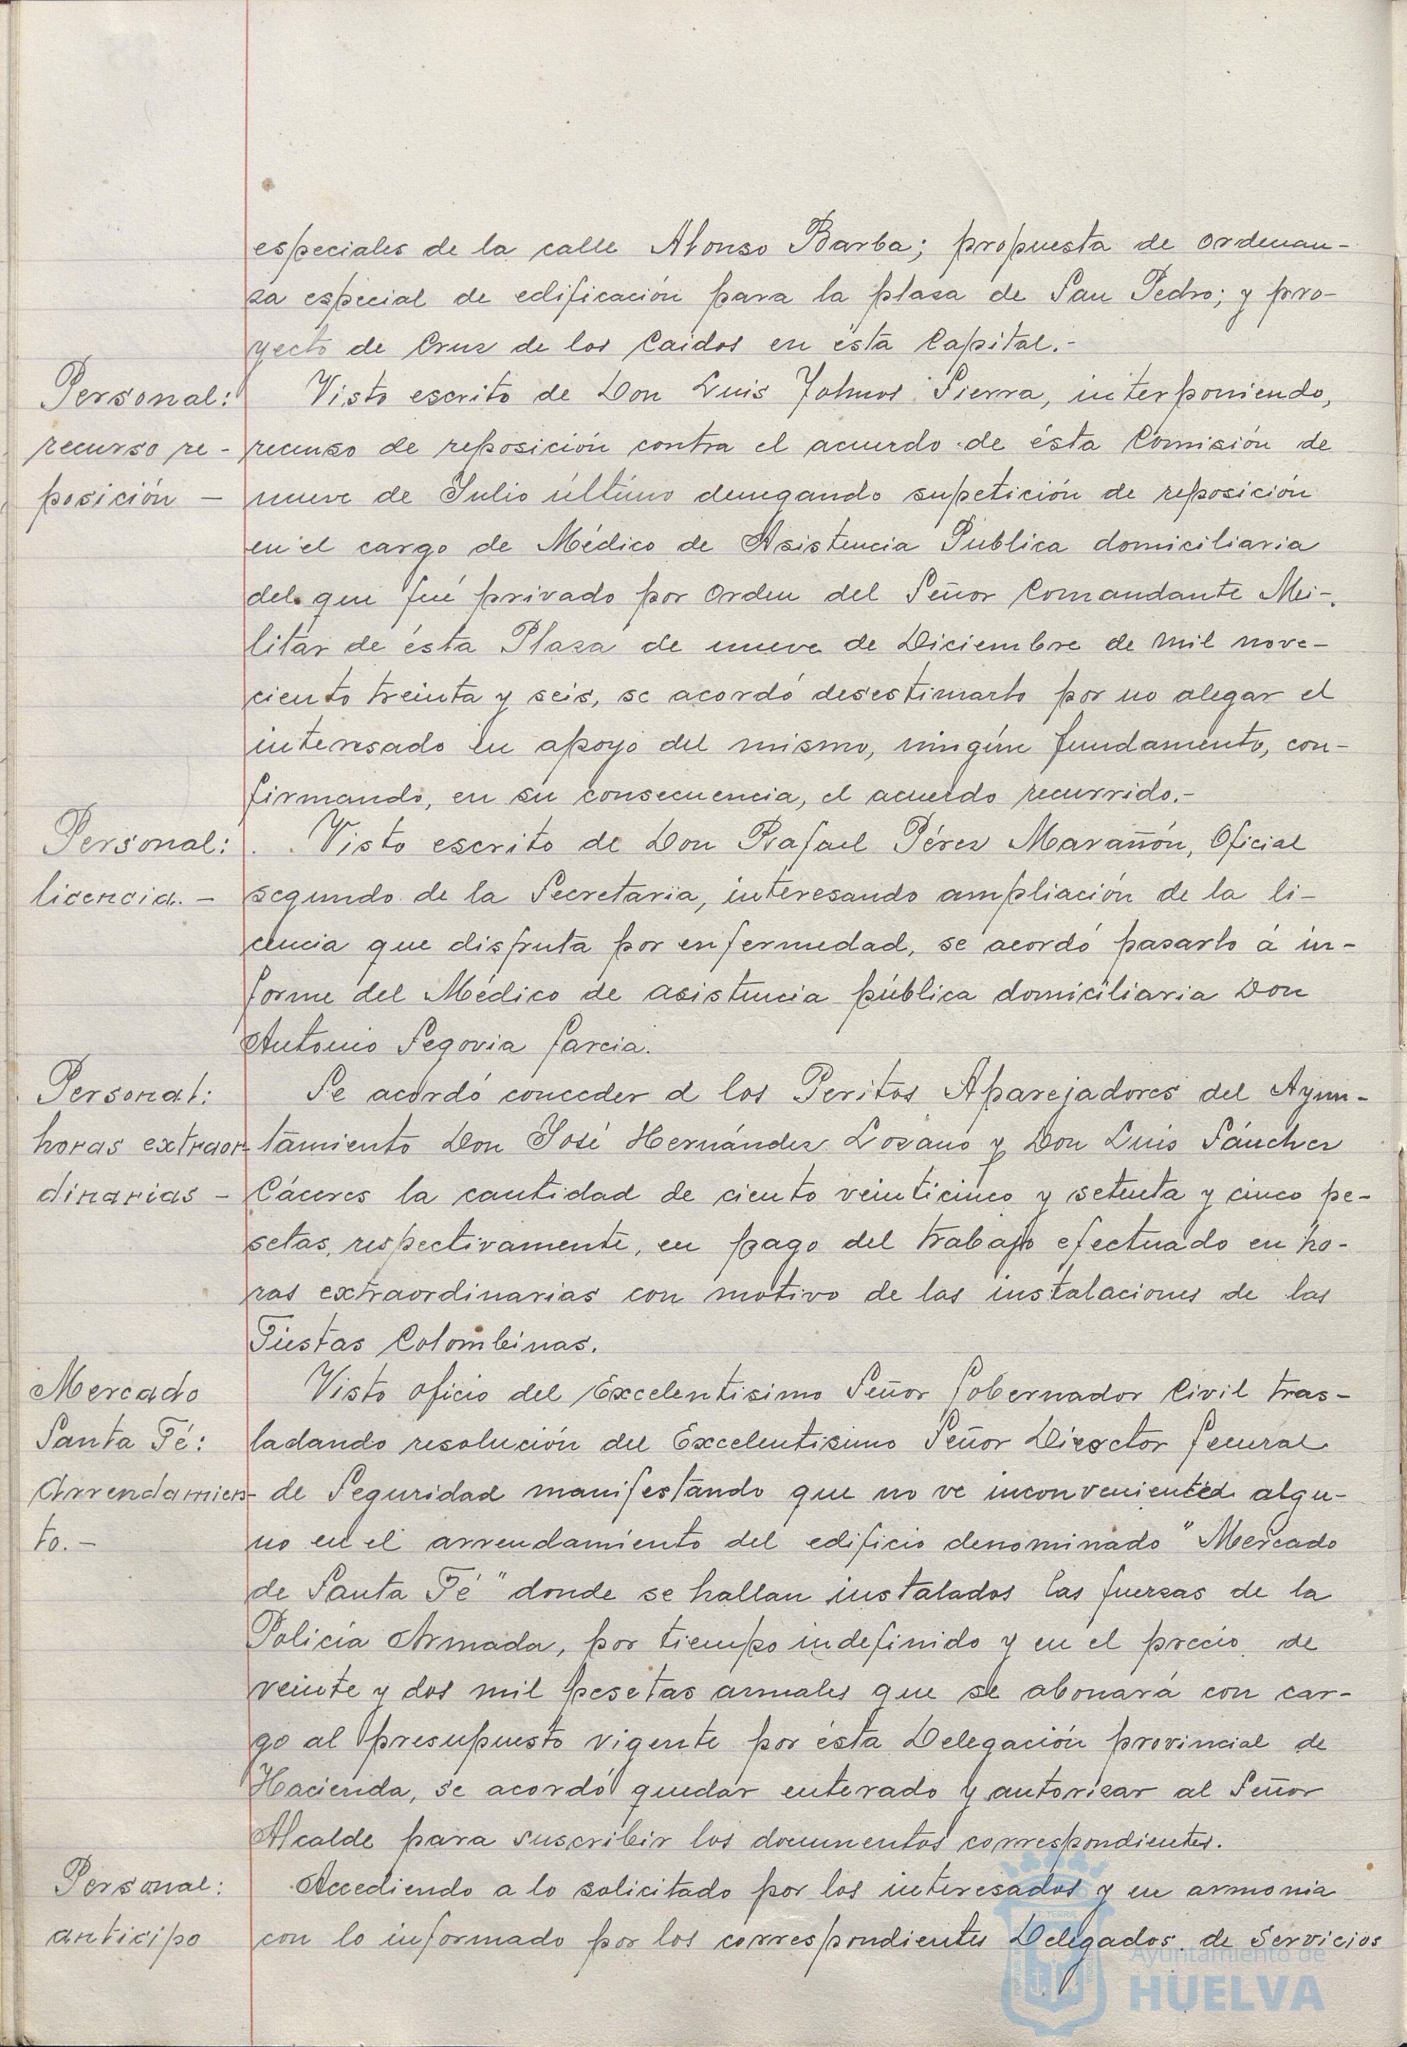 especiales de la calle Alonso Barba; propuesta de ordenan-
za especial de edificación para la plaza de San Pedro; y pro-
yecto de Cruz de los Caidos en ésta Capital.-
Personal:
recurso re-
posición -
Visto escrito de Don Luis Sierra, interponiendo,
recurso de reposición contra el acuerdo de ésta Comisión de
nueve de Julio último denegando su petición de reposición
en el cargo de Médico de Asistencia Publica domiciliaria
del que fué privado por Orden del Señor Comandante Mi-
litar de ésta Plaza de nueve de Diciembre de mil nove-
ciento treinta y seis, se acordó desestimarlo por no alegar el
interesado en apoyo del mismo, ningún fundamento, con-
firmando, en su consecuencia, el acuerdo recurrido.-
Personal:
licencia.-
Visto escrito de Don Rafael Pérez Marañón, Oficial
segundo de la Secretaria, interesando ampliación de la li-
cencia que disfruta por enfermedad, se acordó pasarlo á in-
forme del Médico de asistencia pública domiciliaria Don
Antonio Segovia Garcia.
Personal:
horas extraor-
dinarias -
Se acordó conceder á los Peritos Aparejadores del Ayun-
tamiento Don José Hernández Lozano y Don Luis Sánchez
Cáceres la cantidad de ciento veinticinco y setenta y cinco pe-
setas, respectivamente, en pago del trabajo efectuado en ho-
ras extraordinarias con motivo de las instalaciones de las
Fiestas Colombinas.
Mercado
Santa Fé:
Arrendamien-
to.-
Visto oficio del Excelentisimo Señor Gobernador Civil tras-
ladando resolución del Excelentisimo Señor Director General
de Seguridad manifestando que no ve inconveniente algu-
no en el arrendamiento del edificio denominado "Mercado
de Santa Fé" donde se hallan instalados las fuerzas de la
Policía Armada, por tiempo indefinido y en el precio de
veinte y dos mil pesetas anuales que se abonará con car-
go al presupuesto vigente por ésta Delegación provincial de
Hacienda, se acordó quedar enterado y autorizar al Señor
Alcalde para suscribir los documentos correspondientes.
Personal:
anticipo
Accediendo a lo solicitado por los interesados y en armonia
con lo informado por los correspondientes Delegados de Servicios
Ayuntamiento de
HUELVA